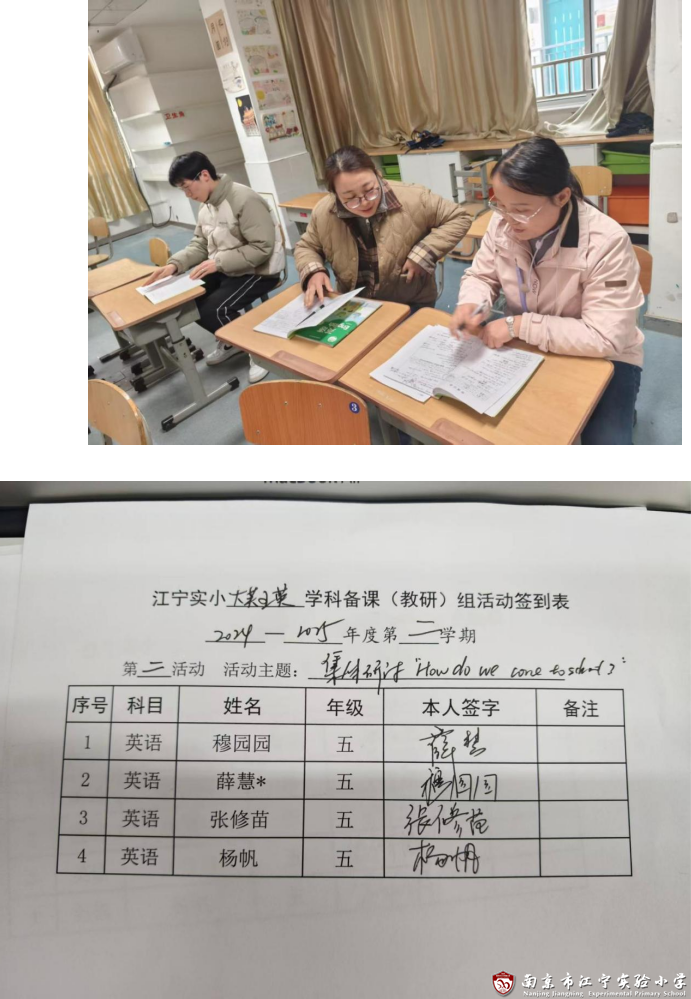 卫生角
3
MacBook Air
江宁实小 大英五英 学科备课（教研）组活动签到表
2024—2025 年度第 二 学期
第 二 活动 活动主题： 集体研讨 "How do we come to school?"
序号 科目 姓名 年级 本人签字 备注
1 英语 穆园园 五 薛慧
2 英语 薛慧* 五 穆园园
3 英语 张修苗 五 张修苗
4 英语 杨帆 五 杨帆
南京市江宁实验小学
Nanjing Jiangning Experimental Primary School